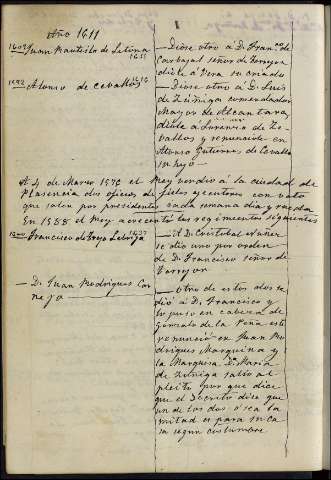 Año 1611
1609 Juan Bautista de Letona
1611
Diose otro á D. Franco de
Carbajal señor de Torrejon
dióle á Vera su criado
1592 Alonso de Ceballos 1616
Diose otro á D. Luis
de Zúñiga comendador
Mayor de Alcantara,
dióle á Lorenzo de Ze
ballos y renuncióle en
Alonso Gutierrez de Ceballos
su hijo
A 4 de Marzo 1576 el Rey vendió á la ciudad de
Plasencia dos oficios de fieles ejecutores con voto
que salen por presidentes cada semana dia y rueda
En 1538 el Rey acrecentó los regimientos siguientes
Francisco de Trejo Lebrija 1627
A D. Cristobal Nuñez
se dio uno por orden
de D. Francisco señor de
Torrejon
D. Juan Rodrigues Cor
nejo
Otro de estos dos se
dió á D. Francisco y
lo puso en cabeza de
Gonzalo de la Peña este
renunció en Juan Ro
drigues Marquina y
la Marquesa Da Maria
de Zúñiga salió al
pleito por que dice
que el Decreto dice que
uno de los dos ó sea la
mitad es para su ca
sa segun costumbre